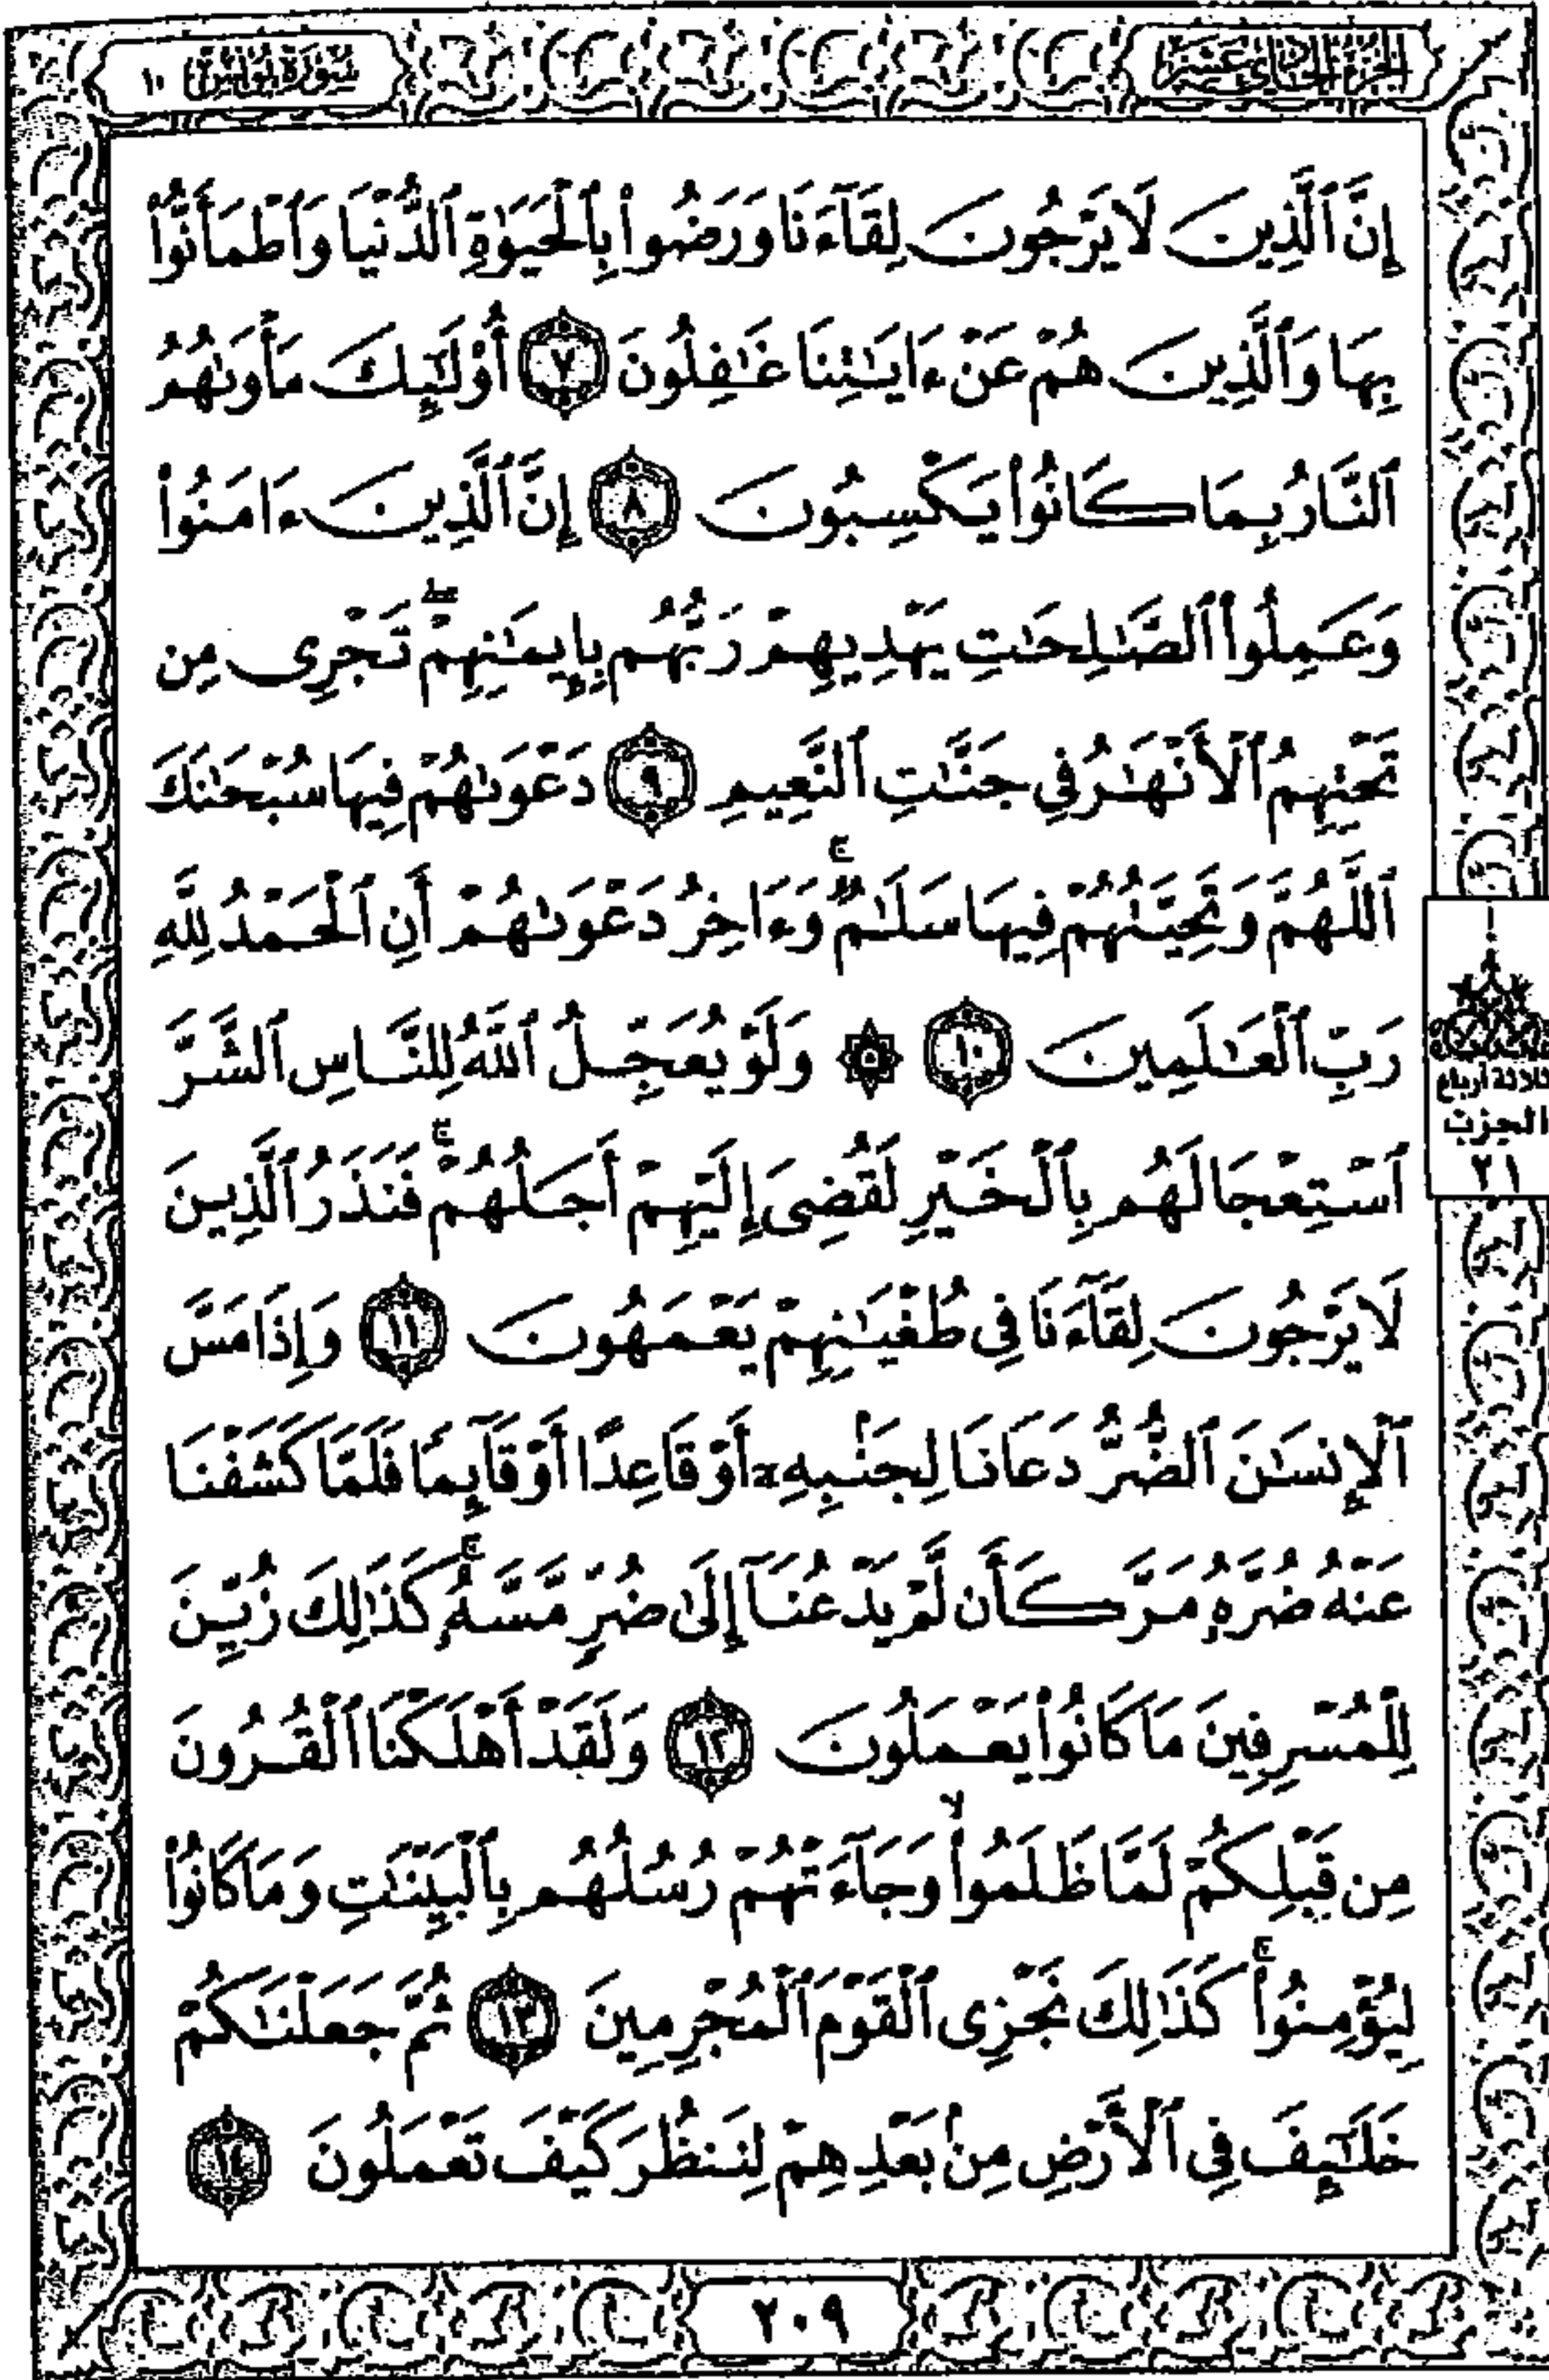 الجزء الحادي عشر
سورة يونس ١٠
إِنَّ ٱلَّذِينَ لَا يَرْجُونَ لِقَآءَنَا وَرَضُوا۟ بِٱلْحَيَوٰةِ ٱلدُّنْيَا وَٱطْمَأَنُّوا۟
بِهَا وَٱلَّذِينَ هُمْ عَنْ ءَايَـٰتِنَا غَـٰفِلُونَ ٧ أُو۟لَـٰٓئِكَ مَأْوَىٰهُمُ
ٱلنَّارُ بِمَا كَانُوا۟ يَكْسِبُونَ ٨ إِنَّ ٱلَّذِينَ ءَامَنُوا۟
وَعَمِلُوا۟ ٱلصَّـٰلِحَـٰتِ يَهْدِيهِمْ رَبُّهُم بِإِيمَـٰنِهِمْ ۖ تَجْرِى مِن
تَحْتِهِمُ ٱلْأَنْهَـٰرُ فِى جَنَّـٰتِ ٱلنَّعِيمِ ٩ دَعْوَىٰهُمْ فِيهَا سُبْحَـٰنَكَ
ٱللَّهُمَّ وَتَحِيَّتُهُمْ فِيهَا سَلَـٰمٌ ۚ وَءَاخِرُ دَعْوَىٰهُمْ أَنِ ٱلْحَمْدُ لِلَّهِ
رَبِّ ٱلْعَـٰلَمِينَ ١٠ ۞ وَلَوْ يُعَجِّلُ ٱللَّهُ لِلنَّاسِ ٱلشَّرَّ
ٱسْتِعْجَالَهُم بِٱلْخَيْرِ لَقُضِىَ إِلَيْهِمْ أَجَلُهُمْ ۖ فَنَذَرُ ٱلَّذِينَ
لَا يَرْجُونَ لِقَآءَنَا فِى طُغْيَـٰنِهِمْ يَعْمَهُونَ ١١ وَإِذَا مَسَّ
ٱلْإِنسَـٰنَ ٱلضُّرُّ دَعَانَا لِجَنۢبِهِۦٓ أَوْ قَاعِدًا أَوْ قَآئِمًا فَلَمَّا كَشَفْنَا
عَنْهُ ضُرَّهُۥ مَرَّ كَأَن لَّمْ يَدْعُنَآ إِلَىٰ ضُرٍّ مَّسَّهُۥ ۚ كَذَٰلِكَ زُيِّنَ
لِلْمُسْرِفِينَ مَا كَانُوا۟ يَعْمَلُونَ ١٢ وَلَقَدْ أَهْلَكْنَا ٱلْقُرُونَ
مِن قَبْلِكُمْ لَمَّا ظَلَمُوا۟ ۙ وَجَآءَتْهُمْ رُسُلُهُم بِٱلْبَيِّنَـٰتِ وَمَا كَانُوا۟
لِيُؤْمِنُوا۟ ۚ كَذَٰلِكَ نَجْزِى ٱلْقَوْمَ ٱلْمُجْرِمِينَ ١٣ ثُمَّ جَعَلْنَـٰكُمْ
خَلَـٰٓئِفَ فِى ٱلْأَرْضِ مِنۢ بَعْدِهِمْ لِنَنظُرَ كَيْفَ تَعْمَلُونَ ١٤
ثلاثة أرباع
الحزب
٢١
٢٠٩